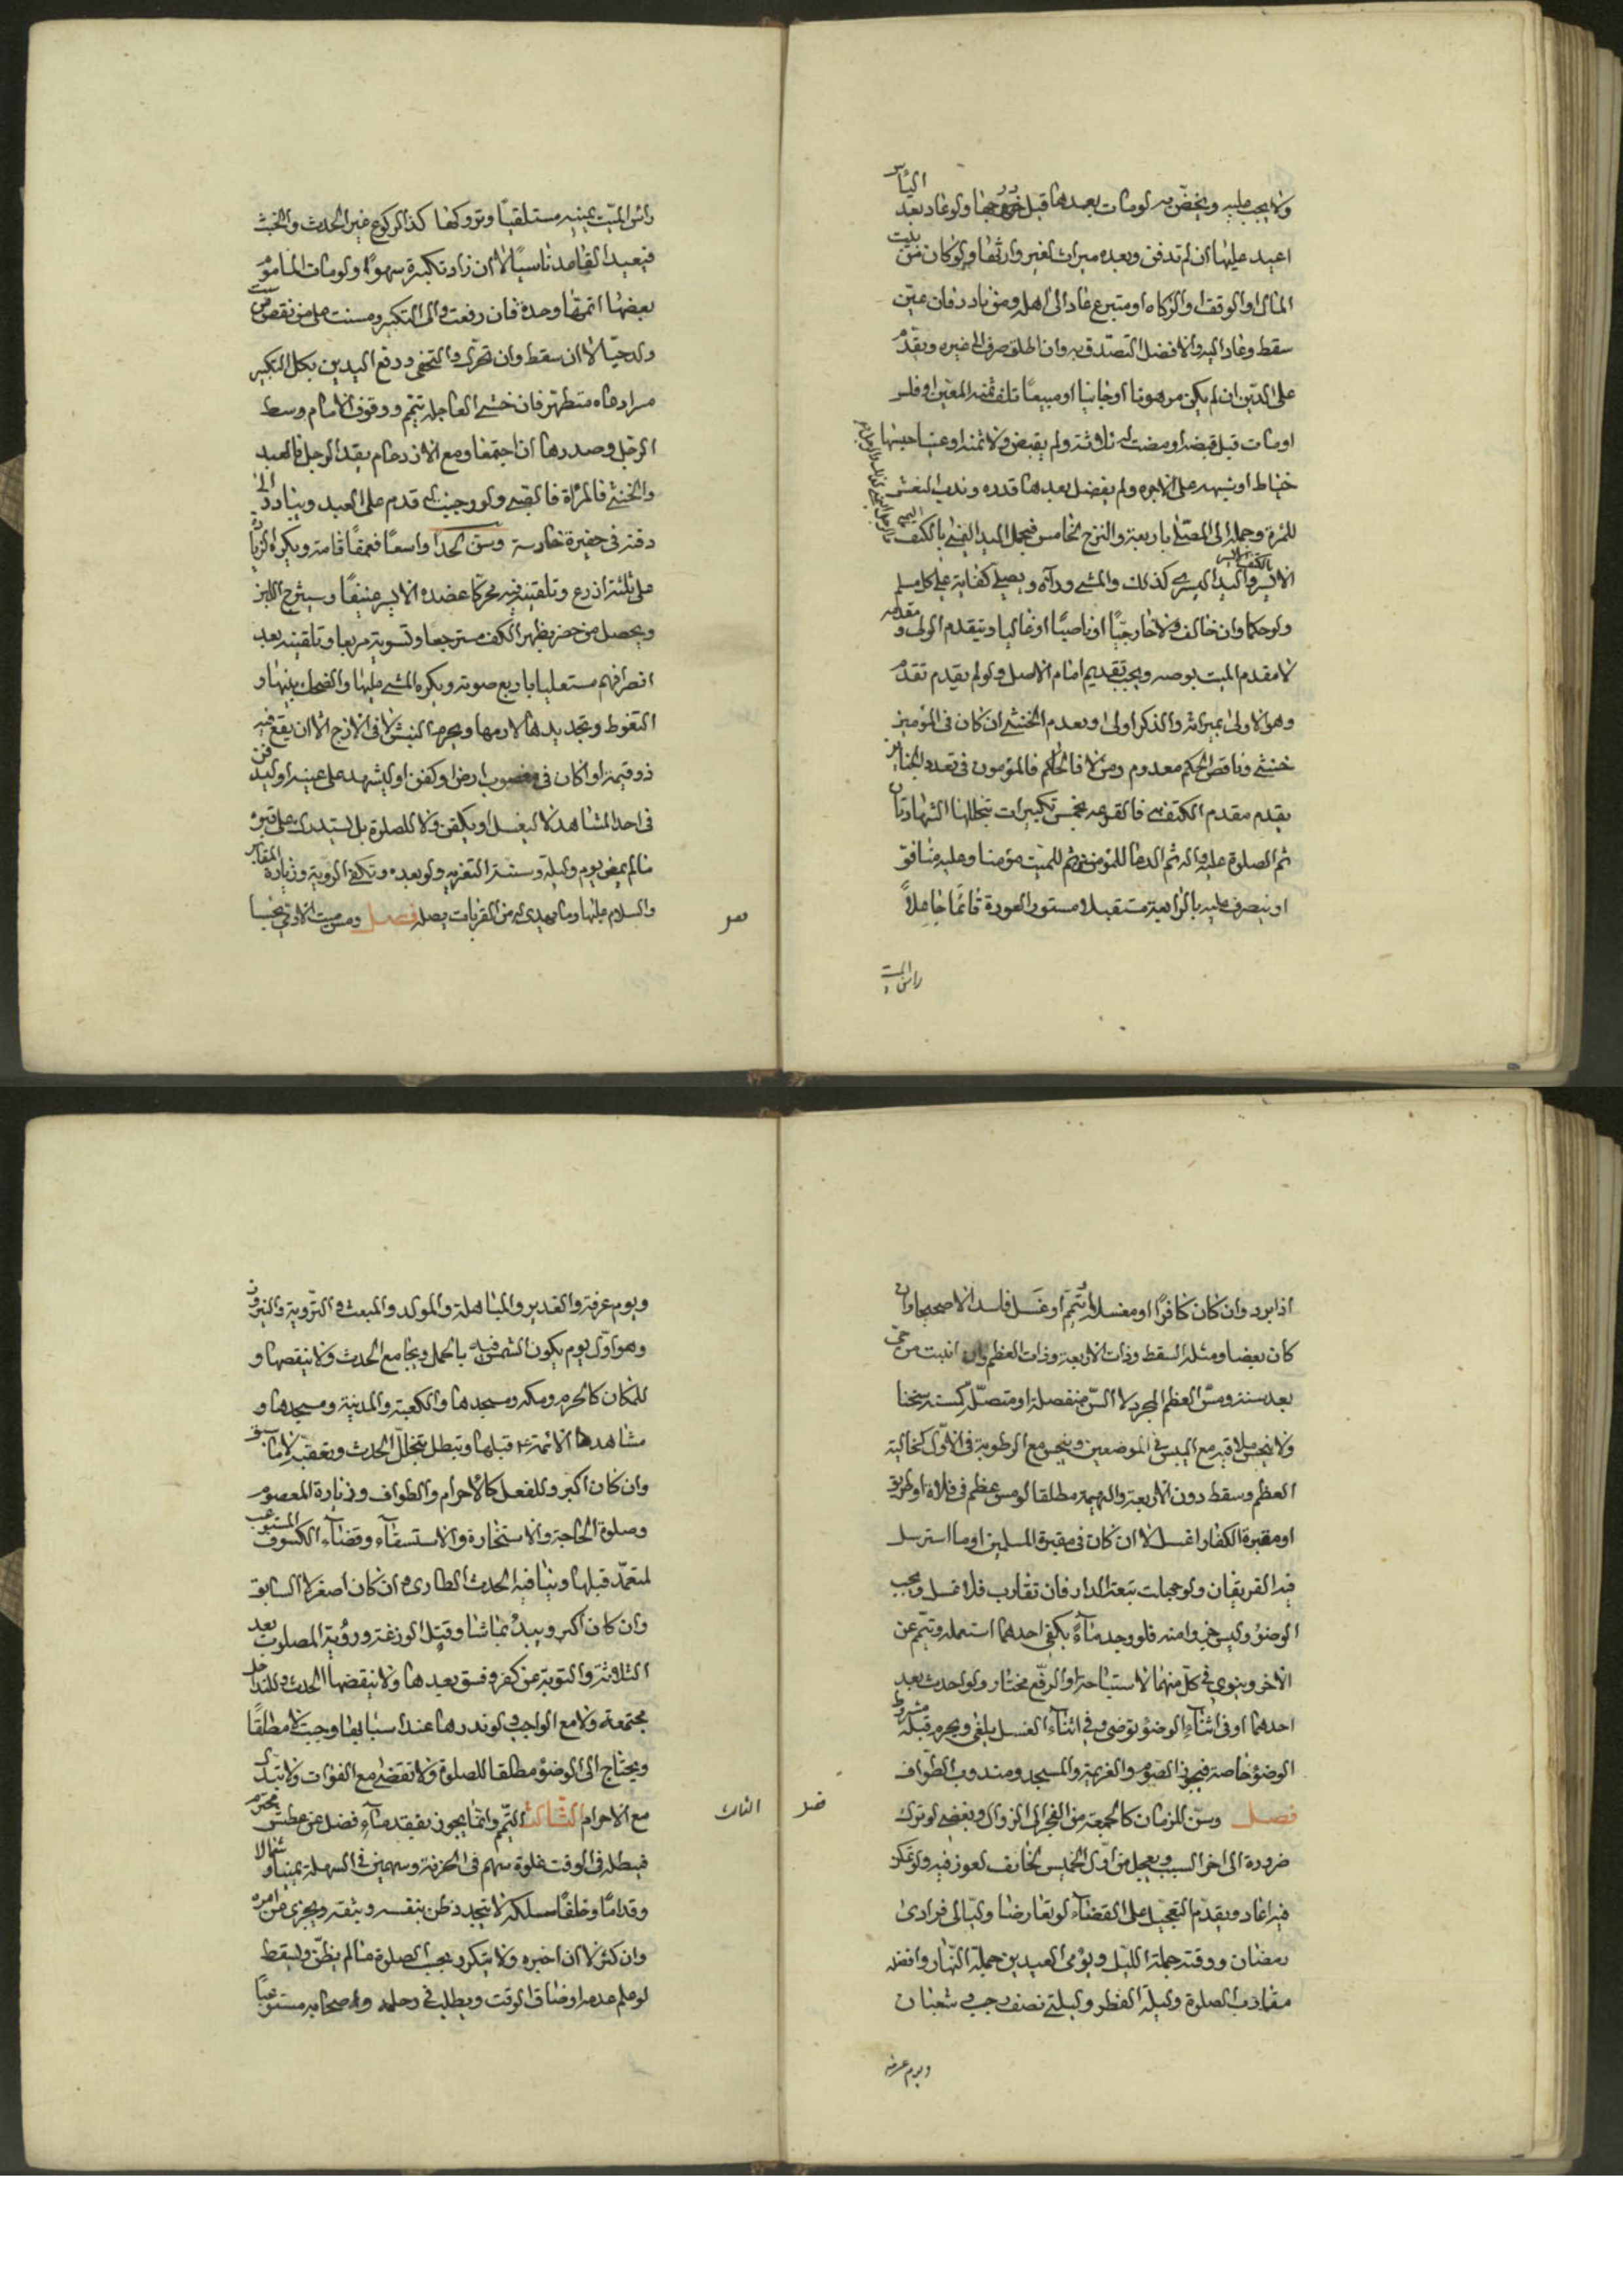 ولا يجب عليه ويختص به لومات بعدها قبل خروجها ولو عاد بعد اليأس
اعيد عليها ان لم تدفن وبعده ميراث لغير وارثها ولو كان من بيت
المال او الوقف او الزكاه او متبرع عاد الى اهله ومن بادر فان عين
سقط وعاد اليه والافضل التصدق به وان اطلق صرف الى غيره ويقدم
على الدين ان لم يكن مرهونا او جانيا او مبيعا تلف ثمنه المعين او فلس
او مات قبل قبضه او مضت له ثلاثة ولم يقبض ولا ثمنه او عينا حبسها
خياط او شبهه على الاجره ولم يفضل بعدها قدره وندب النعش
للمرة وحمله الى المصلى باربعة والتزح لخامس فيحمل اليد اليمنى بالكتف
الايسر واليد اليسرى كذلك والمشي ورآه ويصلي كفاية على كل مسلم
ولو حكما وان خالف لا خارجيا او ناصبيا او غاليا ويتقدم الولي و مقدمه
لا مقدم الميت بوصيه ويجب تقديم امام الاصل ولو لم يقدم تقدم
وهو الاولى بميراثه والذكر اولى وبعدم الخنثى ان كان في المؤمنين
خنثى وناقص الحكم معدوم ومن لا فالحاكم فالمؤمنون في تعدد الجنائز
يقدم مقدم الكتفى فالقرعه بخمس تكبيرات يتخللها الشهادتان
ثم الصلوة عليه واله ثم الدعا للمؤمنين ثم للميت مؤمنا وعليه منافق
او ينصرف عليه بالرابعة مستقبلا مستور العورة قائما جاعلا
راس الميت
راس الميت يمينه مستلقيا وتروكها كذا لركوع غير الحدث والخبث
فيعيد القاعد ناسيا لا ان زاد تكبيرة سهوا ولو مات الماموم
بعضها اتمها وحدة فان رفعت والى التكبير وسنت على من نقص من
ولد حيا لا ان سقط وان تحرك والتحفي ورفع اليدين بكل التكبير
مرادعاه متطهر فان خشي العاجله تيمم ووقوف الامام وسط
الرجل وصدرها ان اجتمعا ومع الازدحام يقدم الرجل فالعبد
والخنثى فالمرأة فالصبي ولو وجبت له قدم على العبد ويبادر الى
دفنه في حفيرة حارسة وسن لحدا واسعا فعمقا قامة ويكره الزيادة
على ثلثة اذرع وتلقينه فيه محركا عضده الايسر عنيفا وسيشرح اللبن
ويحصل من حضر بظهر الكف مسترجعا وتسويته مربعا وتلقينه بعد
انصرافهم مستعليا باربع صوته ويكره المشي عليها والضحك بينها و
التغوط وتجديدها لا رمها ويحرم النبش لا في الازج الا ان يقع فيه
ذو قيمة او كان في مغصوب ارض او كفن او ليشهد على عينه او ليدفن
في احد المشاهد لا ليغسل او يكفن ولا للصلوة بل يستدرك على قبره
مالم يمض يوم وليلة وسنت التعزيه ولو بعده وتكفي الروية وزيارة المقابر
والسلام عليها وما يهدي له من القربات يصله فصل ومس ميت الادمي نجسا
فصل
اذا برد وان كان كافرا او مغسلا او تيمم او غسل فاسد الا صحيحا وان
كان بعضا ومثله السقط وذات الاربعة وذات العظم وان انبت من حي
بعد سنة ومس العظم المجرد لا السن منفصلة او متصل كسته نجنا
ولا ينجس ملاقيه مع اليبس في الموضعين وينجس مع الرطوبة في الاول كخالية
العظم وسقط دون الاربعة والبهيمة مطلقا لومس عظم في فلاة او طريق
او مقبرة الكفار اغسل لا ان كان في مقبرة المسلمين او ما استرسل
فيه الفريقان ولو جهلت تبعت الدار فان تقارب فلا غسل ويجب
الوضوء وليس جزوا منه فلو وجد مآء يكفي احدهما استعمله وتيمم عن
الاخر وينوى في كل منهما الاستباحة او الرفع مختار ولو احدث بعد
احدهما او في اثناء الوضوء توضى وفي اثناء الغسل يلغى ويحرم قبله مشروط
الوضوء خاصة فيجوز الصوم والعزيمة والمسجد ومندوب الطواف
فصل وسن للزمان كالجمعة من الفجر الى الزوال ويقضى لو ترك
ضرورة الى اخر السبت ويعجل من اول الخميس لخائف لعوز فيه ولو تمكن
فيه اعاد ويقدم التعجيل على القضاء لو تعارضا وليالى فرادى
رمضان ووقته جملة الليل ويومى العيدين جملة النهار وافضله
مقارب الصلوة وليلة الفطر وليلتي نصف رجب وشعبان
ويوم عرفه
فصل
ويوم عرفة والغدير والمباهلة والمولد والمبعث والتروية والنيروز
وهو اول يوم يكون الشمس فيه بالحمل ويجامع الحدث ولا ينقصها و
للمكان كالحرم ومكه ومسجدها والكعبة والمدينة ومسجدها و
مشاهدها الائمة قبلها ويبطل بتخلل الحدث وتعقبه لا ما سبق
وان كان اكبر وللفعل كالاحرام والطواف وزيارة المعصوم
وصلوة الحاجة والاستخارة والاستسقآء وقضآء الكسوف المستوعب
لمتعمد قبلها وينافيه الحدث الطارى وان كان اصغر لا السابق
وان كان اكبر ويبدء بما شا وقتل الوزغة ورؤية المصلوب بعد
الثلاثة والتوبة عن كفر وفسق بعدها ولا ينقضها الحدث وللتداخل
مجتمعة ولا مع الواجب ولو ندرها عند اسبابها وجبت لا مطلقا
ويحتاج الى الوضوء مطلقا للصلوة ولا تقضى مع الفوات ولا تبدل
مع الاحرام الثالث التيمم وانما يجوز بفقد مآء فضل عن عطش محترم
الثالث
فيطلبه في الوقت غلوة سهم في الحزنة وسهمين في السهلة يمينا و شمالا
وقداما وخلفا يسلكه لا يتجدد ظن بنفسه وبثقة ويجزى عن امره
وان كثر لا ان اخبره ولا يتكرر بحسب الصلوة مالم يظن ويسقط
لو علم عدمه او ضاق الوقت ويطلب في رحله واصحابه مستوعبا